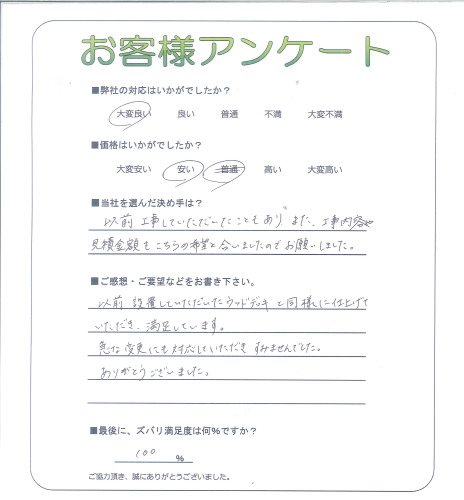 お客様アンケート
■弊社の対応はいかがでしたか？
大変良い 良い 普通 不満 大変不満
■価格はいかがでしたか？
大変安い 安い 普通 高い 大変高い
■当社を選んだ決め手は？
以前工事していただいたこともあり また、工事内容や
見積金額もこちらの希望と合いましたのでお願いしました。
■ご感想・ご要望などをお書き下さい。
以前設置していただいたウッドデッキと同様に仕上げて
いただき、満足しています。
急な変更にも対応していただき すみませんでした。
ありがとうございました。
■最後に、ズバリ満足度は何%ですか？
100 %
ご協力頂き、誠にありがとうございました。